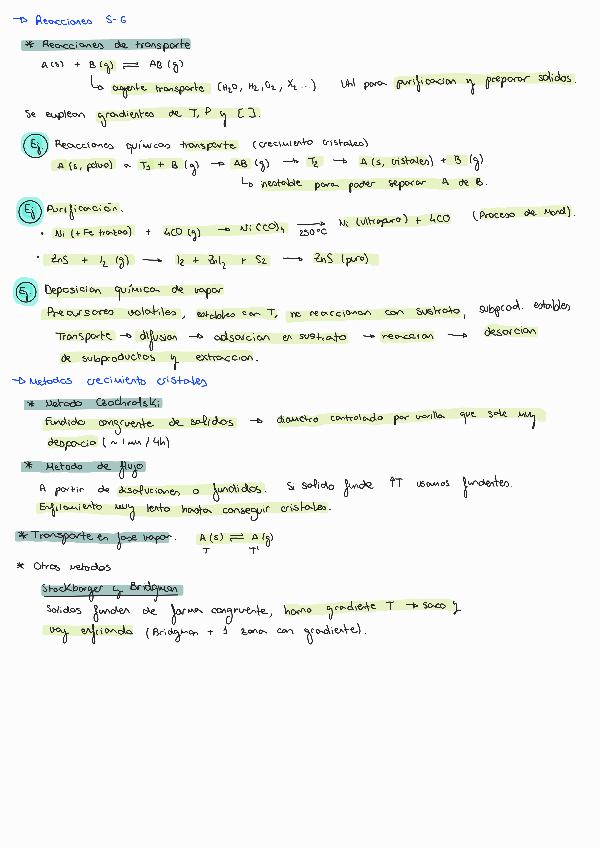 → Reacciones S-G
* Reacciones de transporte
A(s) + B(g) ⇌ AB(g)
↳ agente transporte (H2O, H2, O2, X2...) Util para purificacion y preparar solidos.
Se emplean gradientes de T, P y [ ].
Ej Reacciones químicas transporte (crecimiento cristales)
A (s, polvo) a T1 + B (g) → AB (g) → T2 → A (s, cristales) + B (g)
↳ inestable para poder separar A de B.
Ej Purificación.
· Ni (+ Fe trazas) + 4CO (g) → Ni(CO)4 →250°C Ni (ultrapuro) + 4CO (Proceso de Mond).
· ZnS + I2 (g) → I2 + ZnI2 + S2 → ZnS (puro)
Ej. Deposicion química de vapor
Precursores volatiles, estables con T, no reaccionan con sustrato, subprod. estables
Transporte → difusion → adsorcion en sustrato → reaccion → desorcion
de subproductos y extraccion.
→ Metodos crecimiento cristales
* Metodo Czochralski
Fundido congruente de solidos → diametro controlado por varilla que sale muy
despacio (~ 1 mm / 4h)
* Metodo de flujo
A partir de disoluciones o fundidos. Si solido funde ↑T usamos fundentes.
Enfriamiento muy lento hasta conseguir cristales.
* Transporte en fase vapor. A(s) ⇌ A(g)
T T'
* Otros metodos
Stockbarger y Bridgman
Solidos funden de forma congruente, horno gradiente T → saco y
voy enfriando (Bridgman + 1 zona con gradiente).